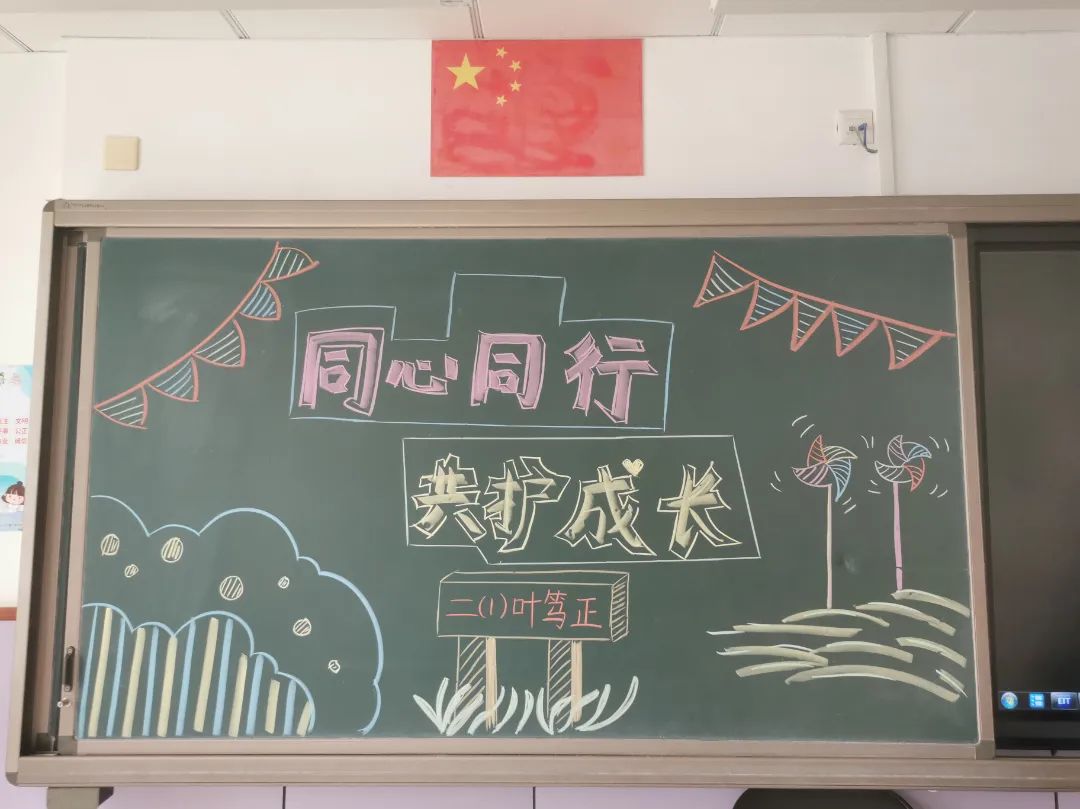 同心同行
共护成长
二(1)叶笃正
EIT